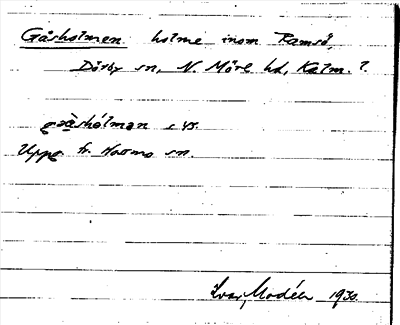 Gåsholmen holme inom Ramsö,
Dörby sn, N. Möre hd, Kalm. l.
gåshólman
Uppg. fr. sn.
Ivar Modéer 1930.